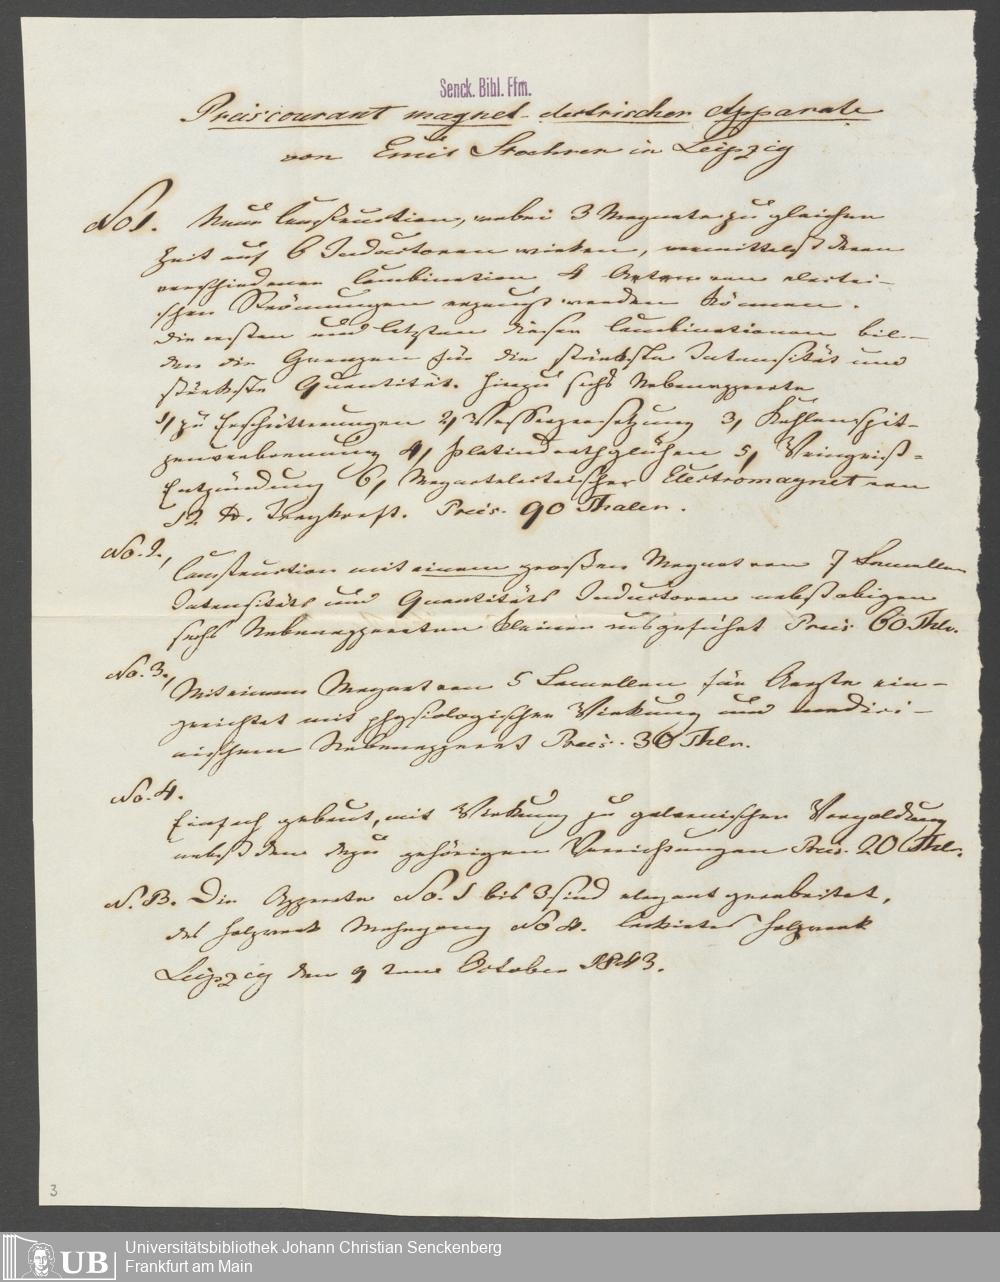 Senck. Bibl. Ffm.
Preiscourant magnet-electrischer Apparate
von Emil Stoehrer in Leipzig
No 1. Neue Construction, wobei 3 Magnete zu gleicher
Zeit auf 6 Inductoren wirken, vermittelst deren
verschiedener Combination 4 Arten von electri-
schen Strömungen erzeugt werden können.
Die ersten und letzten dieser Combinationen bil-
den die Grenzen für die stärkste Intensität und
stärkste Quantität. Hierzu sechs Nebenapparate
1, zu Erschütterungen 2, Wasserzersetzung 3, Kohlenspit-
zenverbrennung 4, Platindrathglühen 5, Weingeist-
Entzündung 6, Magnetelectrischer Electromagnet von
12 ℔. Tragkraft. Preis. 90 Thaler.
No. 2.,
Construction mit einem großen Magnet von 7 Lamellen
Intensitäts und Quantitäts Inductoren nebst obigen
sechs Nebenapparaten kleiner ausgeführt Preis 60 Thlr.
No. 3.,
Mit einem Magnet von 5 Lamellen für Aerzte ein-
gerichtet mit physiologischer Wirkung und medici-
nischem Nebenapparat Preis. 30 Thlr.
No. 4.
Einfach gebaut, mit Wirkung zu galvanischer Vergoldung
nebst den dazu gehörigen Vorrichtungen Preis. 20 Thl.
N. B. Die Apparate No. 1 bis 3 sind elegant gearbeitet,
das Holzwerk Mahagony No 4. lackirtes Holzwerk
Leipzig den 9 October 1843.
3
UB
Universitätsbibliothek Johann Christian Senckenberg
Frankfurt am Main